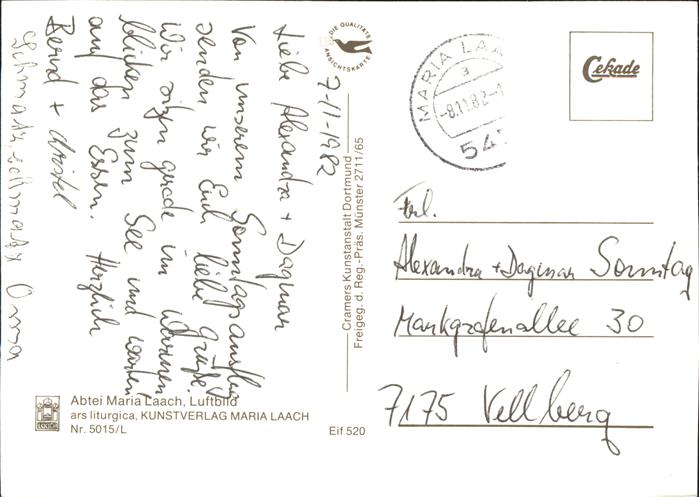 7-11-1982
Liebe Alexandra + Dagmar
Von unserem Sonntagsausflug
senden wir Euch liebe Grüße.
Wir sitzen gerade im Warmen
blicken zum See und warten
auf das Essen. Herzlich
Bernd + Kristel
Schmatz, schmatz Omma
DIE QUALITÄTS
ANSICHTSKARTE
Cramers Kunstanstalt Dortmund
Freigeg. d. Reg.-Präs. Münster 2711/65
Abtei Maria Laach, Luftbild
ars liturgica, KUNSTVERLAG MARIA LAACH
Nr. 5015/L
Eif 520
MARIA LAA
a
-8.11.82-1
547
Cekade
Frl.
Alexandra + Dagmar Sonntag
Markgrafenallee 30
7175 Vellberg